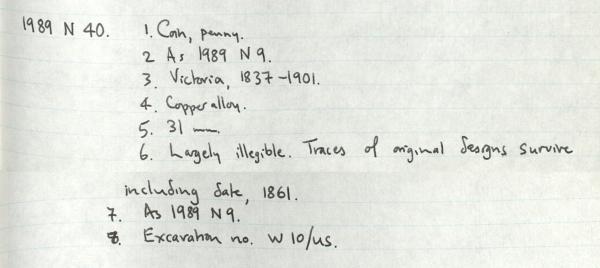 1989 N 40. 1. Coin, penny.
2 As 1989 N 9.
3. Victoria, 1837-1901.
4. Copper alloy.
5. 31 mm.
6. Largely illegible. Traces of original designs survive
including date, 1861.
7. As 1989 N 9.
8. Excavation no. W 10/us.